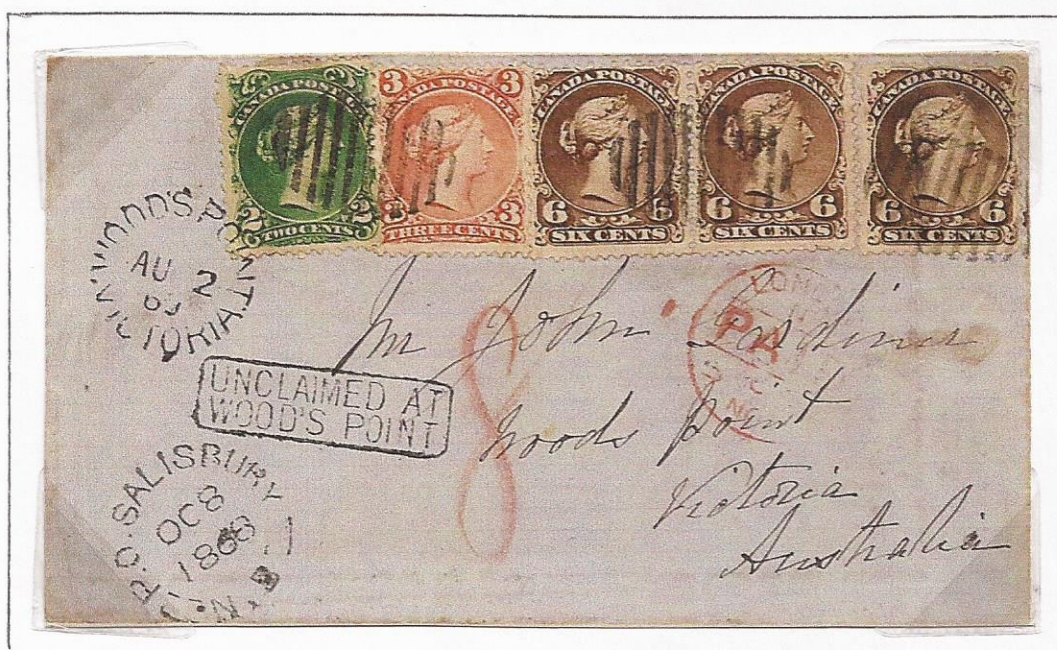 CANADA POSTAGE
2 2
TWO CENTS
3 3
CANADA POSTAGE
3 3
THREE CENTS
CANADA POSTAGE
6 6
SIX CENTS
CANADA POSTAGE
6 6
SIX CENTS
CANADA POSTAGE
6 6
SIX CENTS
WOOD'S POINT
AU 2
VICTORIA
UNCLAIMED AT
WOOD'S POINT
P.O. SALISBURY
OC 8
1868
N.B.
8
Mr John Gardiner
Woods Point
Victoria
Australia